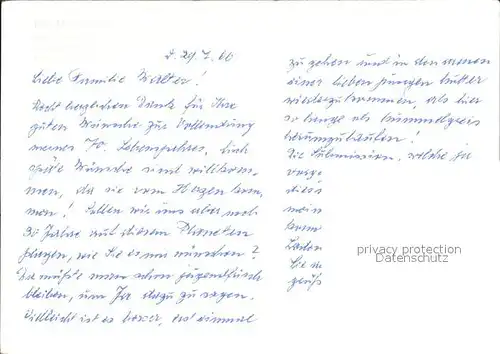 d. 29.7.60
Liebe Familie Walter!
Recht herzlichen Dank für Ihre
guten Wünsche zur Vollendung
meines 70. Lebensjahres. Auch
späte Wünsche sind willkom-
men, da sie vom Herzen kom-
men! Sollen wir uns aber noch
30 Jahre auf diesem Planeten
plagen, wie Sie es mir wünschen?
Da müßte man schon jugendfrisch
bleiben, um Ja dazu zu sagen.
Vielleicht ist es besser, erst einmal
zu gehen und in den Armen
einer lieben jungen Mutter
wiederzukommen, als hier
so lange als
herumzulaufen!
Die welche
diese
mein
komm
Sie
grüß
privacy protection
Datenschutz